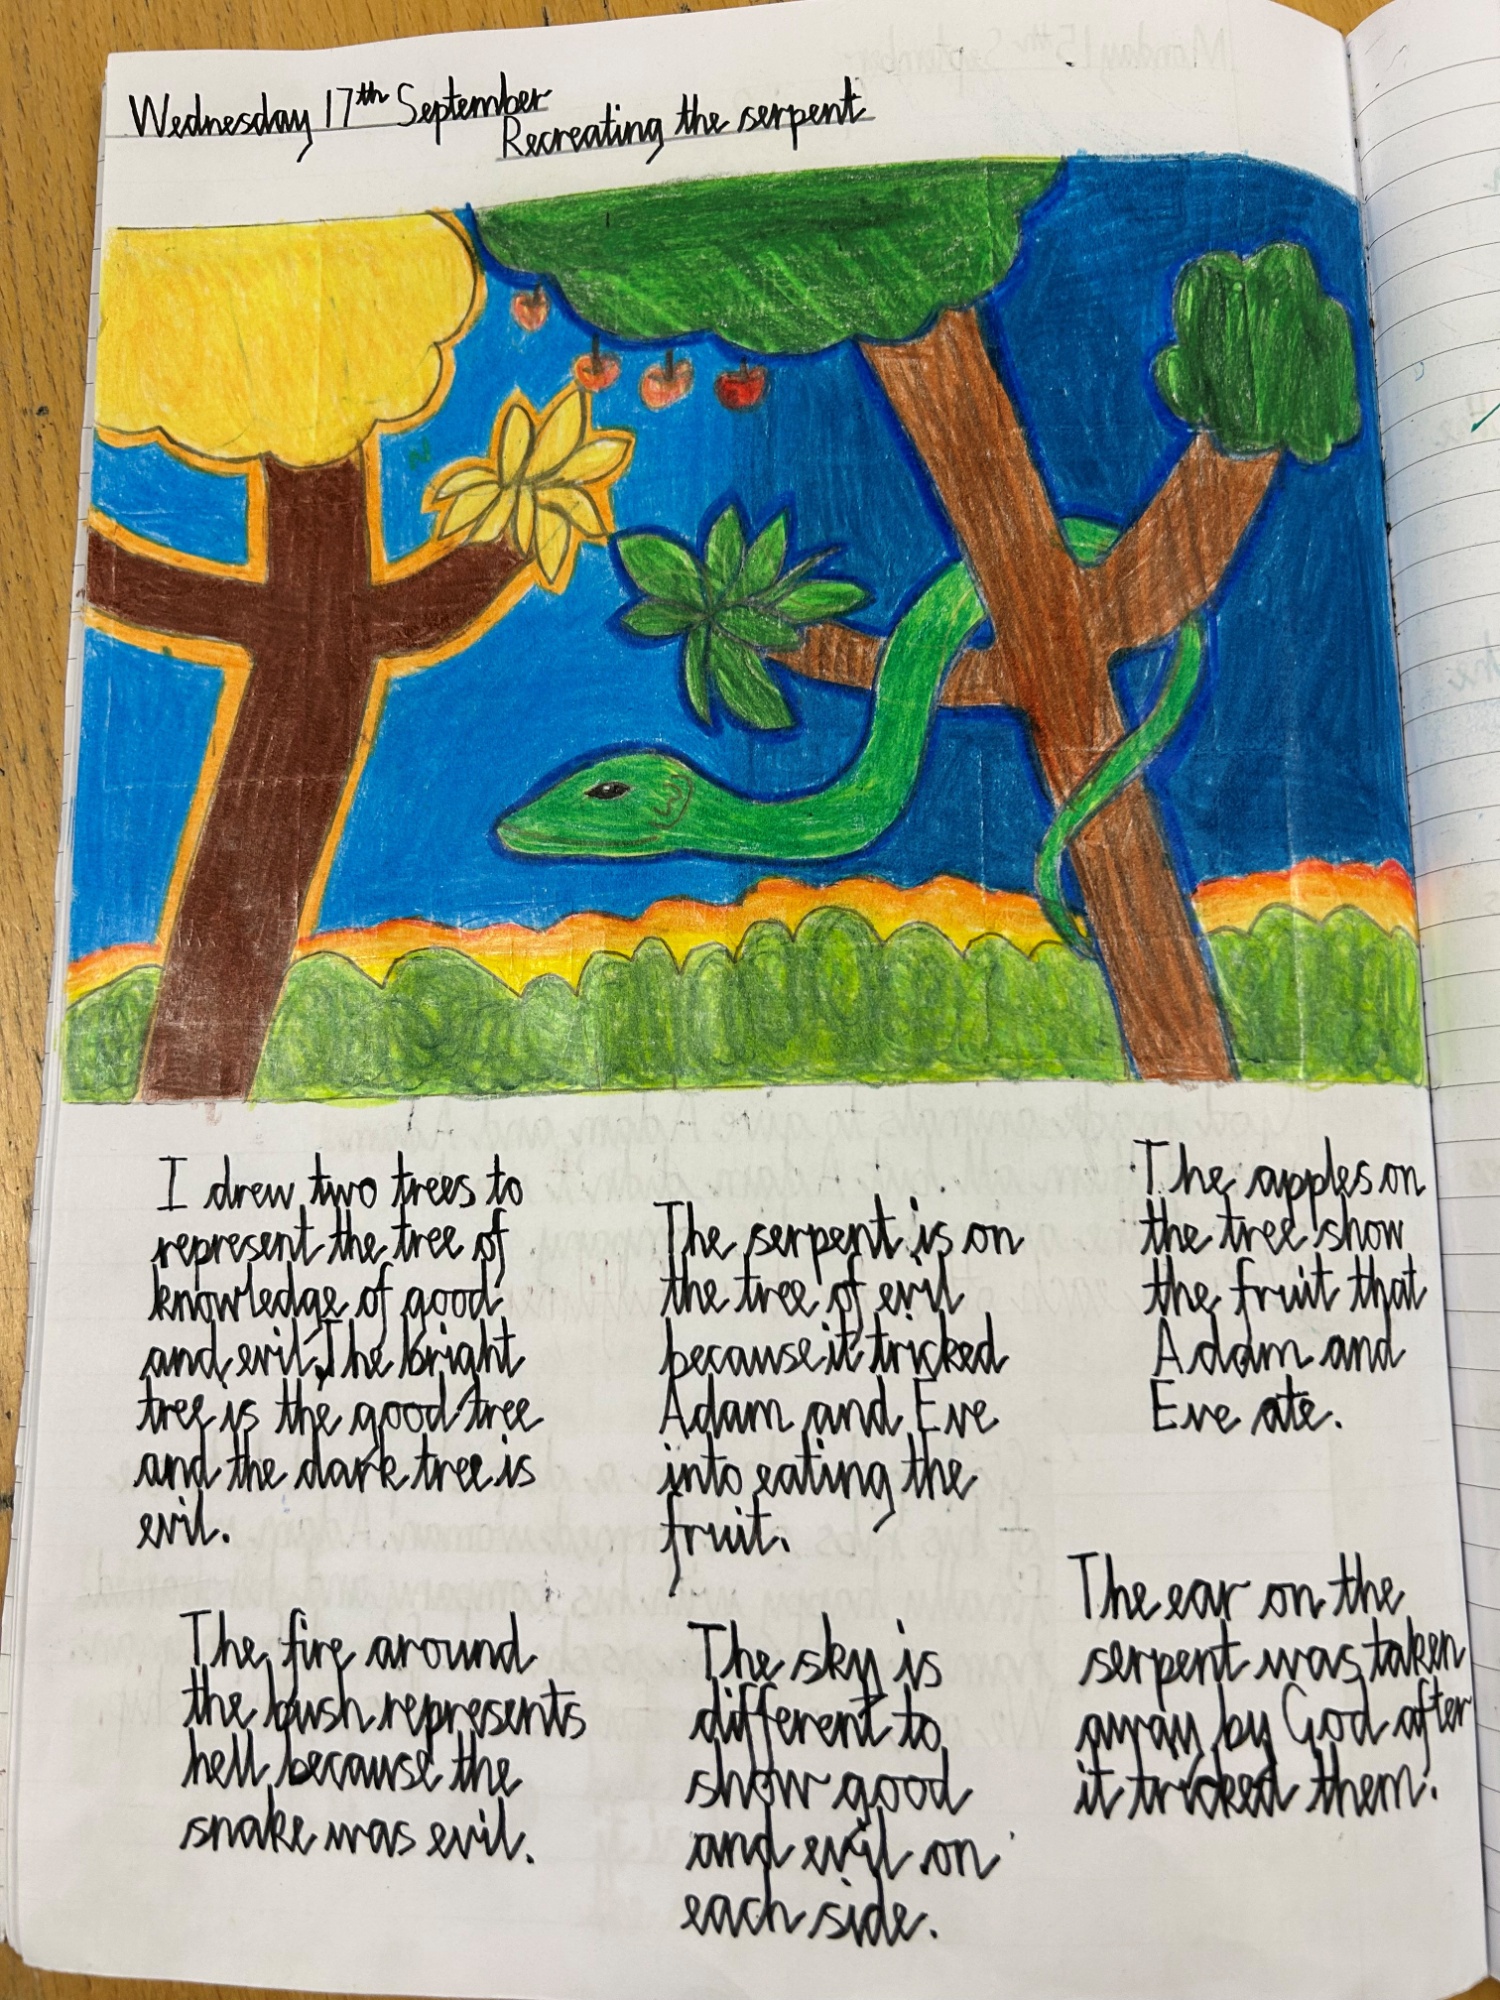 Wednesday 17th September
Recreating the serpent
I drew two trees to
represent the tree of
knowledge of good
and evil. The bright
tree is the good tree
and the dark tree is
evil.
The serpent is on
the tree of evil
because it tricked
Adam and Eve
into eating the
fruit.
The apples on
the tree show
the fruit that
Adam and
Eve ate.
The fire around
the bush represents
hell because the
snake was evil.
The sky is
different to
show good
and evil on
each side.
The ear on the
serpent was taken
away by God after
it tricked them.